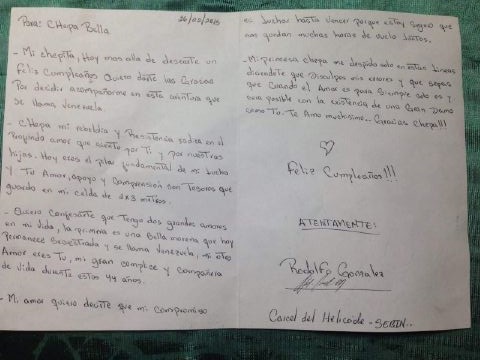 Para: CHepa Bella
26/02/2015
- Mi chepita, Hoy mas alla de desearte un
Feliz Cumpleaños Quiero darte las Gracias
Por decidir acompañarme en esta aventura que
se llama Venezuela.
- CHepa mi rebeldia y Resistencia radica en el
Profundo amor que siento por Ti y por nuestras
hijas. Hoy eres el pilar fundamental de mi lucha
y Tu Amor, apoyo y Comprension son Tesoros que
guardo en mi celda de 2x3 mtros.
- Quiero Confesarte que Tengo dos grandes amores
en mi Vida, la primera es una Bella morena que hoy
Permanece Secuestrada y se llama Venezuela, mi otro
Amor eres Tu, mi gran complice y compañera
de Vida durante estos 44 años.
- Mi amor quiero decirte que mi Compromiso
es luchar hasta vencer porque estoy seguro que
nos quedan muchas horas de vuelo juntos.
- Mi princesa chepa me despido solo en estas lineas
diciendote que Disculpes mis errores y que sepas
que Cuando el Amor es para Siempre solo es y
sera posible con la existencia de una Gran Dama
como Tu. Te Amo muchisimo.. Gracias Chepa!!!
Feliz Cumpleaños!!!
ATENTAMENTE:
Rodolfo Gonzalez
Carcel del Helicoide - SEBIN..